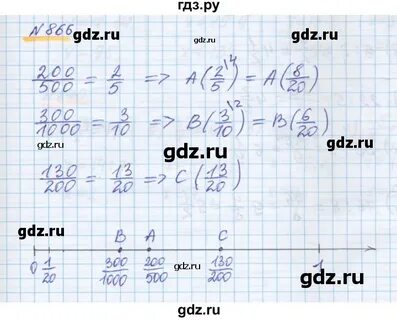 гдз.ру
№ 866
gdz.ru gdz.ru
200/500 = 2/5 => A(2/5 \4) = A(8/20)
gdz.ru
300/1000 = 3/10 => B(3/10 \2) = B(6/20)
gdz.ru
130/200 = 13/20 => C(13/20)
gdz.ru
B A C
0 1/20 300/1000 200/500 130/200 1
gdz.ru gdz.ru